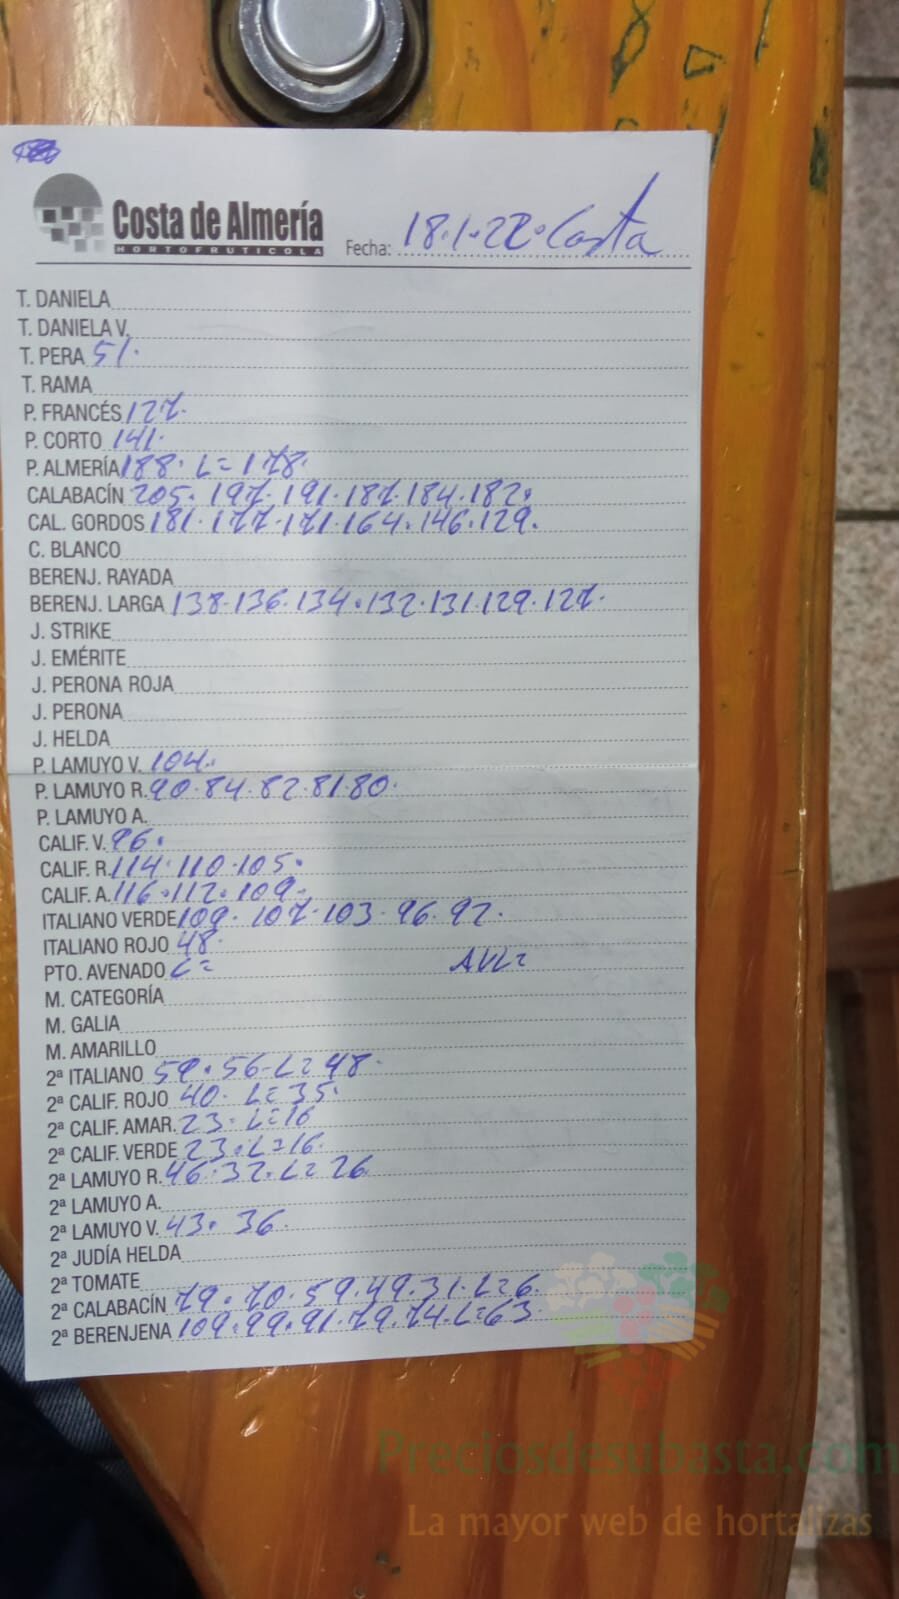 Costa de Almería
HORTOFRUTICOLA
Fecha: 18.1.22. Costa
T. DANELA
T. DANIELA V.
T. PERA 51.
T. RAMA
P. FRANCÉS 127.
P. CORTO 141.
P. ALMERÍA 188. L=178.
CALABACÍN 205. 197. 191. 187. 184. 182.
CAL. GORDOS 181. 177. 171. 164. 146. 129.
C. BLANCO
BERENJ. RAYADA
BERENJ. LARGA 138. 136. 134. 132. 131. 129. 127.
J. STRIKE
J. EMÉRITE
J. PERONA ROJA
J. PERONA
J. HELDA
P. LAMUYO V. 104.
P. LAMUYO R. 90. 84. 82. 81. 80.
P. LAMUYO A.
CALIF. V. 96.
CALIF. R. 114. 110. 105.
CALIF. A. 116. 112. 109.
ITALIANO VERDE 109. 107. 103. 96. 92.
ITALIANO ROJO 48.
PTO. AVENADO L= AVL=
M. CATEGORÍA
M. GALIA
M. AMARILLO
2ª ITALIANO 59. 56. L=48.
2ª CALIF. ROJO 40. L=35.
2ª CALIF. AMAR. 23. L=16
2ª CALIF. VERDE 23. L=16.
2ª LAMUYO R. 46. 32. L=26
2ª LAMUYO A.
2ª LAMUYO V. 43. 36.
2ª JUDÍA HELDA
2ª TOMATE
2ª CALABACÍN 79. 70. 59. 49. 31. L=6.
2ª BERENJENA 109. 99. 91. 79. 74. L=63.
Preciosdesubasta.com
La mayor web de hortalizas